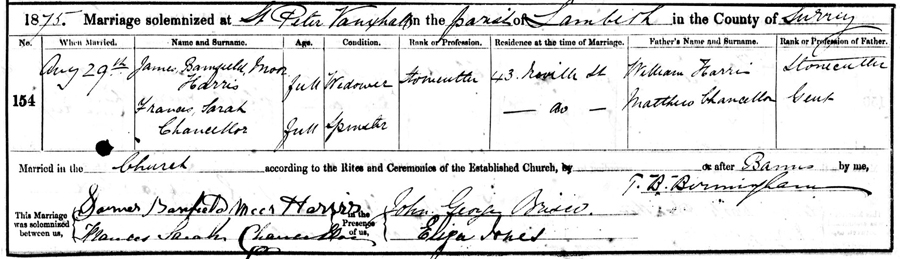 1875. Marriage solemnized at St Peter Vauxhall in the parish of Lambeth in the County of Surrey
No. When Married. Name and Surname. Age. Condition. Rank or Profession. Residence at the time of Marriage. Father's Name and Surname. Rank or Profession of Father.
154
Aug 29th James, Bamfield, Harris full Widower Stonecutter 43. Neville St William Harris Stonecutter
Frances, Sarah Chancellor full Spinster — Do — Matthew Chancellor Gent
Married in the Church according to the Rites and Ceremonies of the Established Church, by or after Banns by me,
T. B. Bermingham
This Marriage was solemnized between us, James Bamfield Harris in the Presence of us, John George
Frances Sarah Chancellor Eliza Jones